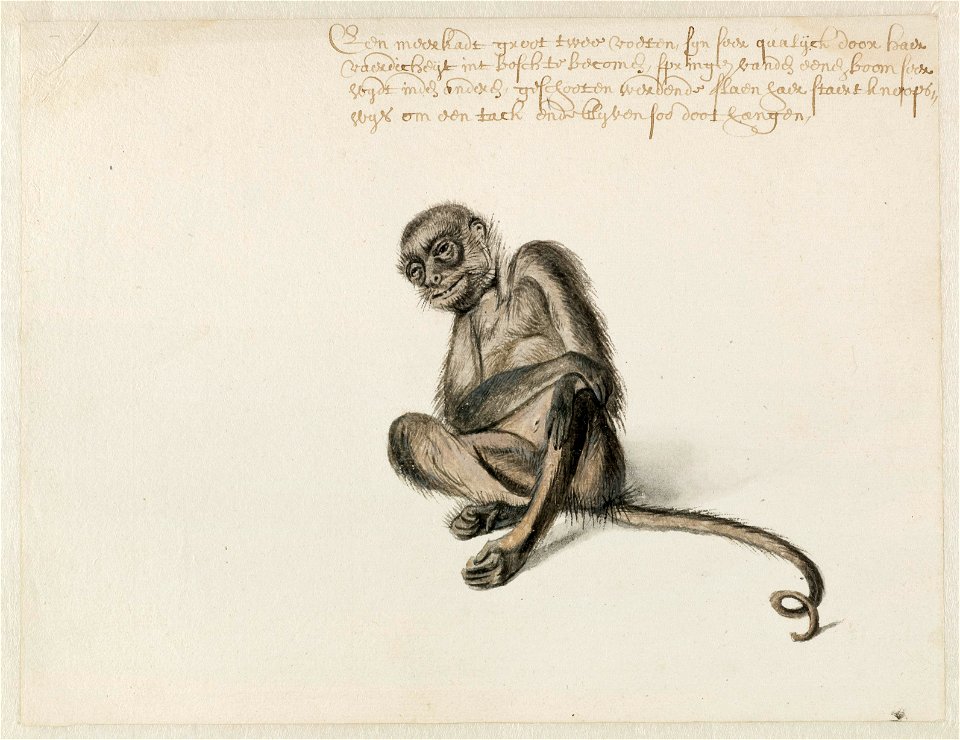 Een meerkadt groot twee voeten, syn seer qualyck door haer
vaerdicheijt int bosch te becomen, springen vanden eenen boom seer
wijdt inden anderen, geschooten werdende slaen haer staert knoops=
wijs om een tack ende blijven soo doot hangen,